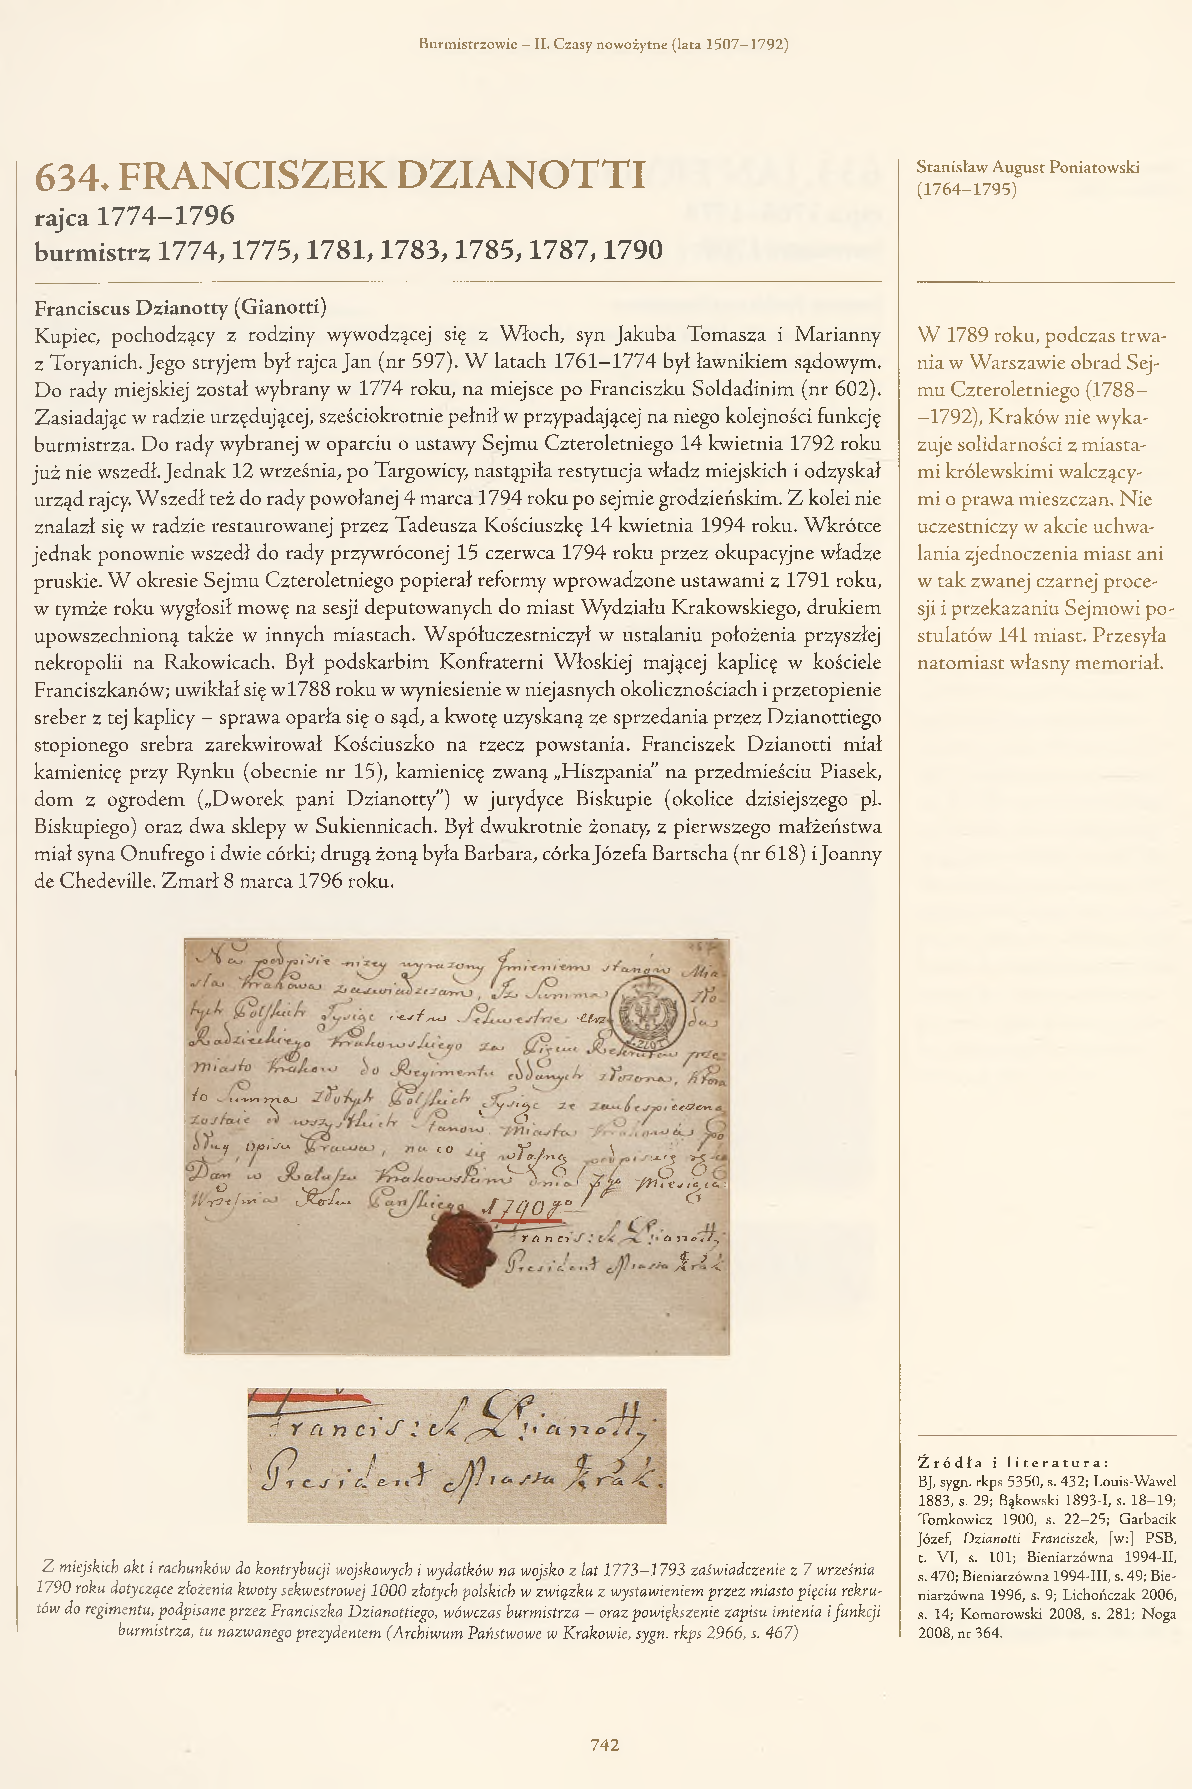 Burmistrzowie – II. Czasy nowożytne (lata 1507–1792)
634. FRANCISZEK DZIANOTTI
rajca 1774–1796
burmistrz 1774, 1775, 1781, 1783, 1785, 1787, 1790
Franciscus Dzianotty (Gianotti)
Kupiec, pochodzący z rodziny wywodzącej się z Włoch, syn Jakuba Tomasza i Marianny
z Toryanich. Jego stryjem był rajca Jan (nr 597). W latach 1761–1774 był ławnikiem sądowym.
Do rady miejskiej został wybrany w 1774 roku, na miejsce po Franciszku Soldadinim (nr 602).
Zasiadając w radzie urzędującej, sześciokrotnie pełnił w przypadającej na niego kolejności funkcję
burmistrza. Do rady wybranej w oparciu o ustawy Sejmu Czteroletniego 14 kwietnia 1792 roku
już nie wszedł. Jednak 12 września, po Targowicy, nastąpiła restytucja władz miejskich i odzyskał
urząd rajcy. Wszedł też do rady powołanej 4 marca 1794 roku po sejmie grodzieńskim. Z kolei nie
znalazł się w radzie restaurowanej przez Tadeusza Kościuszkę 14 kwietnia 1994 roku. Wkrótce
jednak ponownie wszedł do rady przywróconej 15 czerwca 1794 roku przez okupacyjne władze
pruskie. W okresie Sejmu Czteroletniego popierał reformy wprowadzone ustawami z 1791 roku,
w tymże roku wygłosił mowę na sesji deputowanych do miast Wydziału Krakowskiego, drukiem
upowszechnioną także w innych miastach. Współuczestniczył w ustalaniu położenia przyszłej
nekropolii na Rakowicach. Był podskarbim Konfraterni Włoskiej mającej kaplicę w kościele
Franciszkanów; uwikłał się w1788 roku w wyniesienie w niejasnych okolicznościach i przetopienie
sreber z tej kaplicy – sprawa oparła się o sąd, a kwotę uzyskaną ze sprzedania przez Dzianottiego
stopionego srebra zarekwirował Kościuszko na rzecz powstania. Franciszek Dzianotti miał
kamienicę przy Rynku (obecnie nr 15), kamienicę zwaną „Hiszpania” na przedmieściu Piasek,
dom z ogrodem („Dworek pani Dzianotty”) w jurydyce Biskupie (okolice dzisiejszego pl.
Biskupiego) oraz dwa sklepy w Sukiennicach. Był dwukrotnie żonaty, z pierwszego małżeństwa
miał syna Onufrego i dwie córki; drugą żoną była Barbara, córka Józefa Bartscha (nr 618) i Joanny
de Chedeville. Zmarł 8 marca 1796 roku.
Na podpisie niżey wyrażony Imieniem stanow Mia
sta Krakowa zaświadczam, Iż Summa Zło
tych Polskich Tysiąc
Radzieckiego Krakowskiego za Pięciu Rekrutow prze
miasto Krakow do Regimentu oddanych złożona, Ktora
to Summa Złotych Polskich Tysiąc ze zaubespieczona
zostaie od wszystkich Stanow Miasta Krakowa po
dług opisu Prawa, na co się własną podpisuię ręką
Dan w Ratuszu Krakowskim dnia 7go Miesiąca
Września Roku Pańskiego 1790go
Franciszek Dzianotty
President Miasta Krak.
Franciszek Dzianotty
President Miasta Krak.
Z miejskich akt i rachunków do kontrybucji wojskowych i wydatków na wojsko z lat 1773–1793 zaświadczenie z 7 września
1790 roku dotyczące złożenia kwoty sekwestrowej 1000 złotych polskich w związku z wystawieniem przez miasto pięciu rekru-
tów do regimentu, podpisane przez Franciszka Dzianottiego, wówczas burmistrza – oraz powiększenie zapisu imienia i funkcji
burmistrza, tu nazwanego prezydentem (Archiwum Państwowe w Krakowie, sygn. rkps 2966, s. 467)
Stanisław August Poniatowski
(1764–1795)
W 1789 roku, podczas trwa-
nia w Warszawie obrad Sej-
mu Czteroletniego (1788–
–1792), Kraków nie wyka-
zuje solidarności z miasta-
mi królewskimi walczący-
mi o prawa mieszczan. Nie
uczestniczy w akcie uchwa-
lania zjednoczenia miast ani
w tak zwanej czarnej proce-
sji i przekazaniu Sejmowi po-
stulatów 141 miast. Przesyła
natomiast własny memoriał.
Źródła i literatura:
BJ, sygn. rkps 5350, s. 432; Louis-Wawel
1883, s. 29; Bąkowski 1893-I, s. 18–19;
Tomkowicz 1900, s. 22–25; Garbacik
Józef, Dzianotti Franciszek, [w:] PSB,
t. VI, s. 101; Bieniarzówna 1994-II,
s. 470; Bieniarzówna 1994-III, s. 49; Bie-
niarzówna 1996, s. 9; Lichończak 2006,
s. 14; Komorowski 2008, s. 281; Noga
2008, nr 364.
742